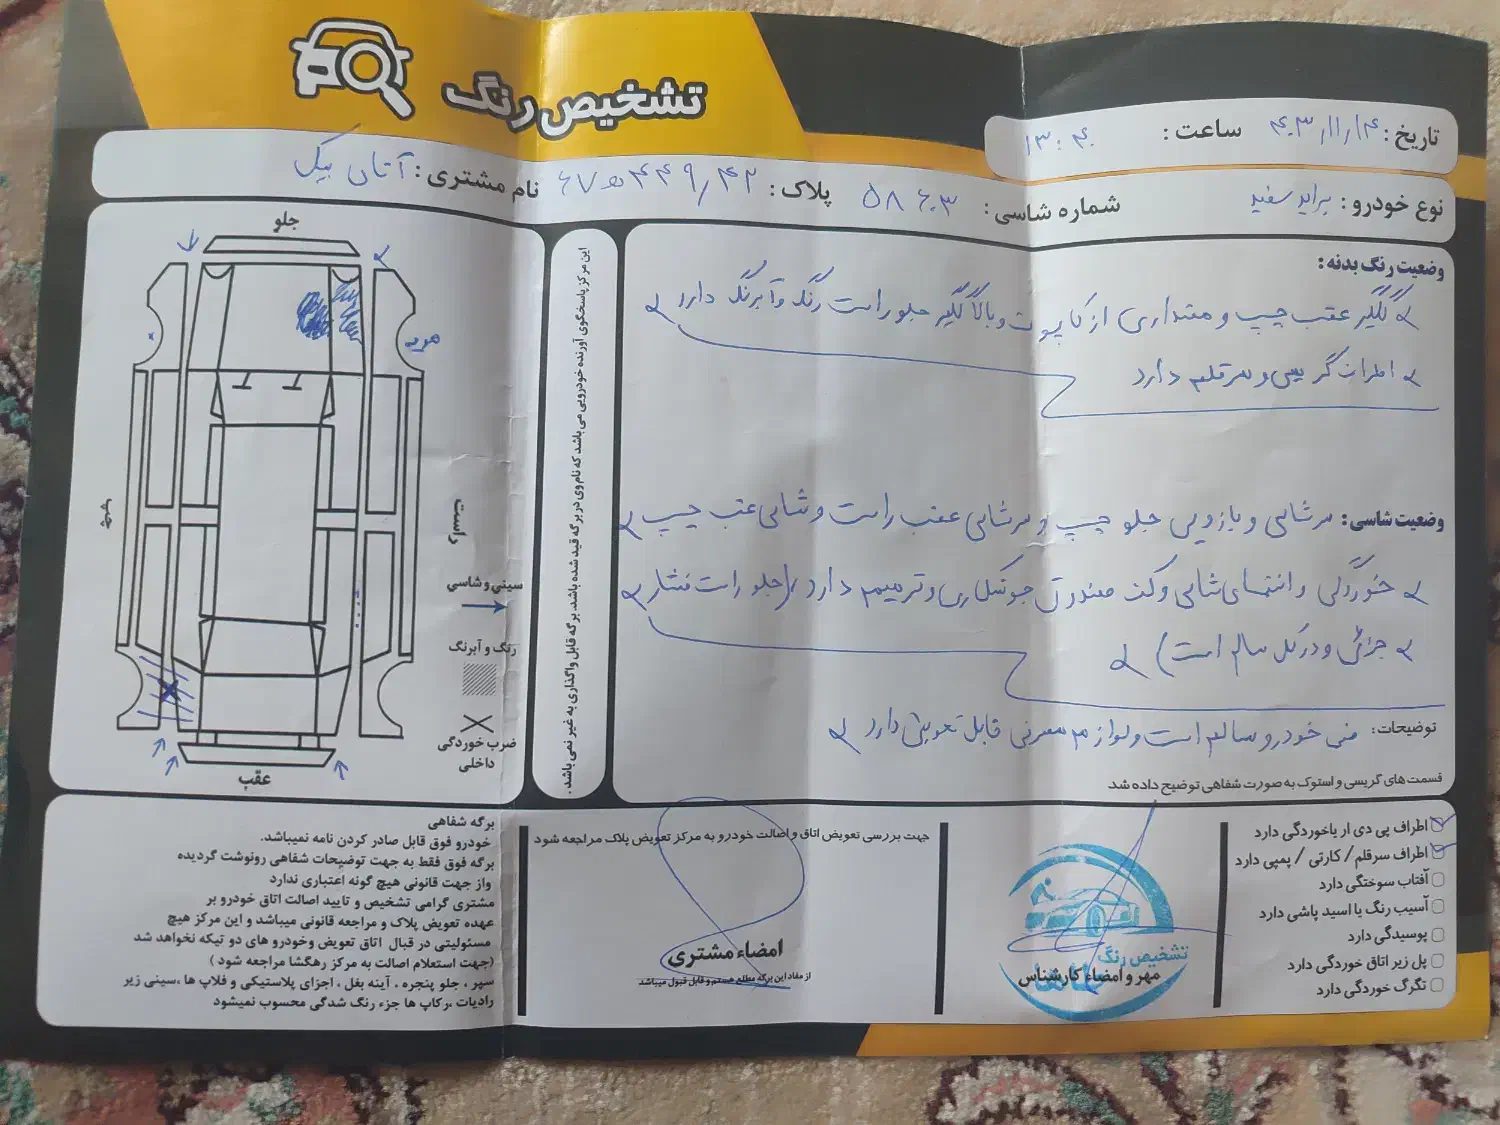 تشخیص رنگ
تاریخ: ۴۰۳/۱۱/۱۴ ساعت: ۱۳:۴۰
نوع خودرو: براید سفید شماره شاسی: ۵۸۶۰۳ پلاک: ۴۲ / ۴۴۹ ه ۶۷ نام مشتری: آتان بیک
وضعیت رنگ بدنه:
گلگیر عقب چپ و مقداری از کاپوت و بالا گلگیر جلو راست رنگ و آبرنگ دارد
اطراف گریسی و سرقلم دارد
وضعیت شاسی: سرشاسی و بازویی جلو چپ و سرشاسی عقب راست و شاسی عقب چپ
خوردگی و انتهای شاسی و کف صندوق جوشکاری و ترمیم دارد (جلو راست فشار
جزئی و در کل سالم است)
توضیحات: فنی خودرو سالم است و لوازم مصرفی قابل تعویض دارد
قسمت های گریسی و استوک به صورت شفاهی توضیح داده شد
این مرکز پاسخگوی آورنده خودرویی می باشد که نام وی در برگه قید شده باشد. برگه قابل واگذاری به غیر نمی باشد.
جلو
چپ
راست
سینی و شاسی
رنگ و آبرنگ
ضرب خوردگی
داخلی
عقب
اطراف پی دی ار یاخوردگی دارد
اطراف سرقلم / کارتی / پمپی دارد
آفتاب سوختگی دارد
آسیب رنگ یا اسید پاشی دارد
پوسیدگی دارد
پل زیر اتاق خوردگی دارد
تگرگ خوردگی دارد
تشخیص رنگ
مهر و امضاء کارشناس
جهت بررسی تعویض اتاق و اصالت خودرو به مرکز تعویض پلاک مراجعه شود
امضاء مشتری
از مفاد این برگه مطلع هستم و قابل قبول میباشد
برگه شفاهی
خودرو فوق قابل صادر کردن نامه نمیباشد.
برگه فوق فقط به جهت توضیحات شفاهی رونوشت گردیده
واز جهت قانونی هیچ گونه اعتباری ندارد
مشتری گرامی تشخیص و تایید اصالت اتاق خودرو بر
عهده تعویض پلاک و مراجعه قانونی میباشد و این مرکز هیچ
مسئولیتی در قبال اتاق تعویض وخودرو های دو تیکه نخواهد شد
(جهت استعلام اصالت به مرکز رهگشا مراجعه شود )
سپر ، جلو پنجره ، آینه بغل ، اجزای پلاستیکی و فلاپ ها ،سینی زیر
رادیات ،رکاپ ها جزء رنگ شدگی محسوب نمیشود